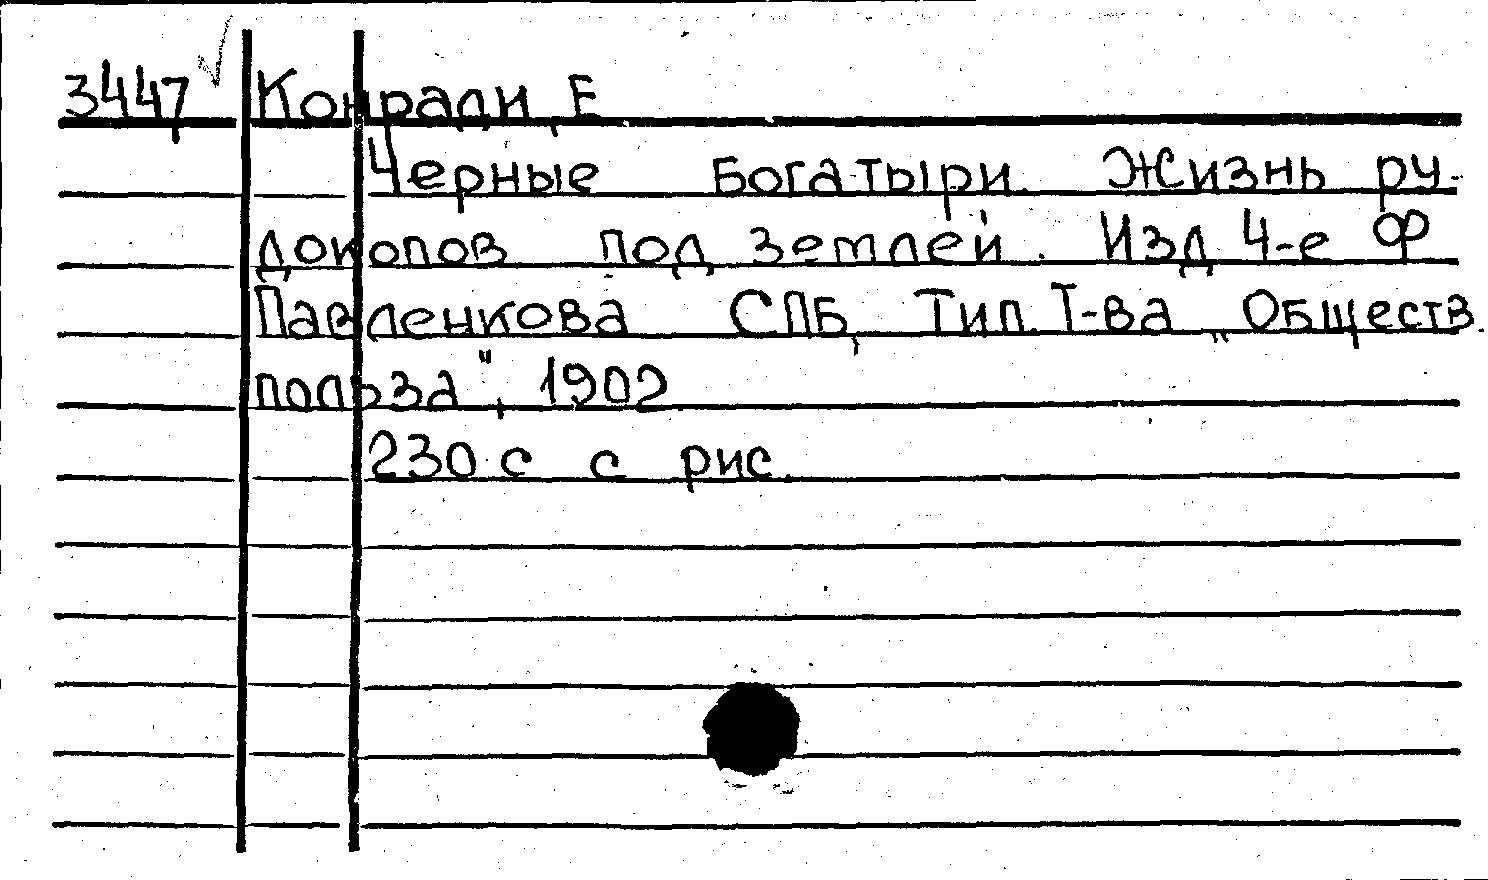 3447 Конради, Е
Черные Богатыри. Жизнь ру-
докопов под землей. Изд. 4-е Ф
Павленкова СПБ, Тип. Т-ва „Обществ.
польза", 1902
230 с с рис.